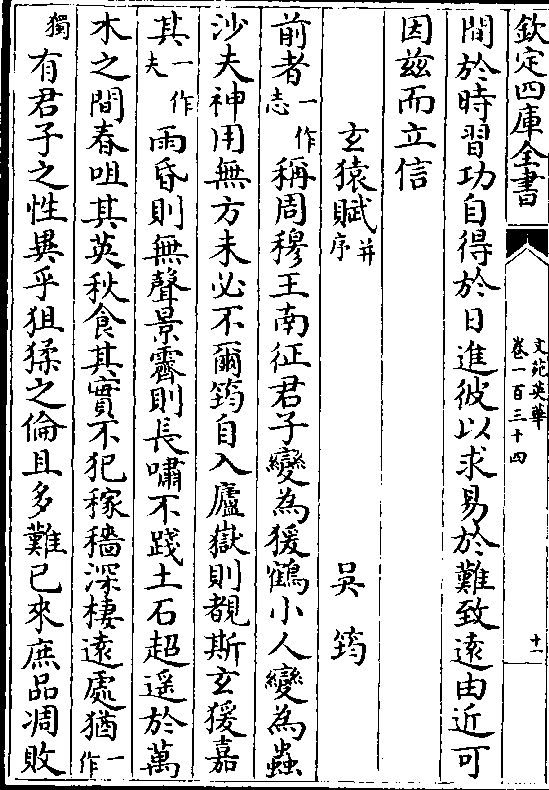 欽定四庫全書
文苑英華
卷一百三十四
十一
間於時習功自得於日進彼以求易於難致遠由近可
因茲而立信
玄猿賦并序
吳筠
前者一作志稱周穆王南征君子變為猨鶴小人變為蟲
沙夫神用無方未必不爾筠自入廬嶽則覩斯玄猨嘉
其一作夫雨昏則無聲景霽則長嘯不踐土石超遥於萬
木之間春咀其英秋食其實不犯稼穡深棲遠處猶一作
獨有君子之性異乎狙猱之倫且多難已來庶品凋敗